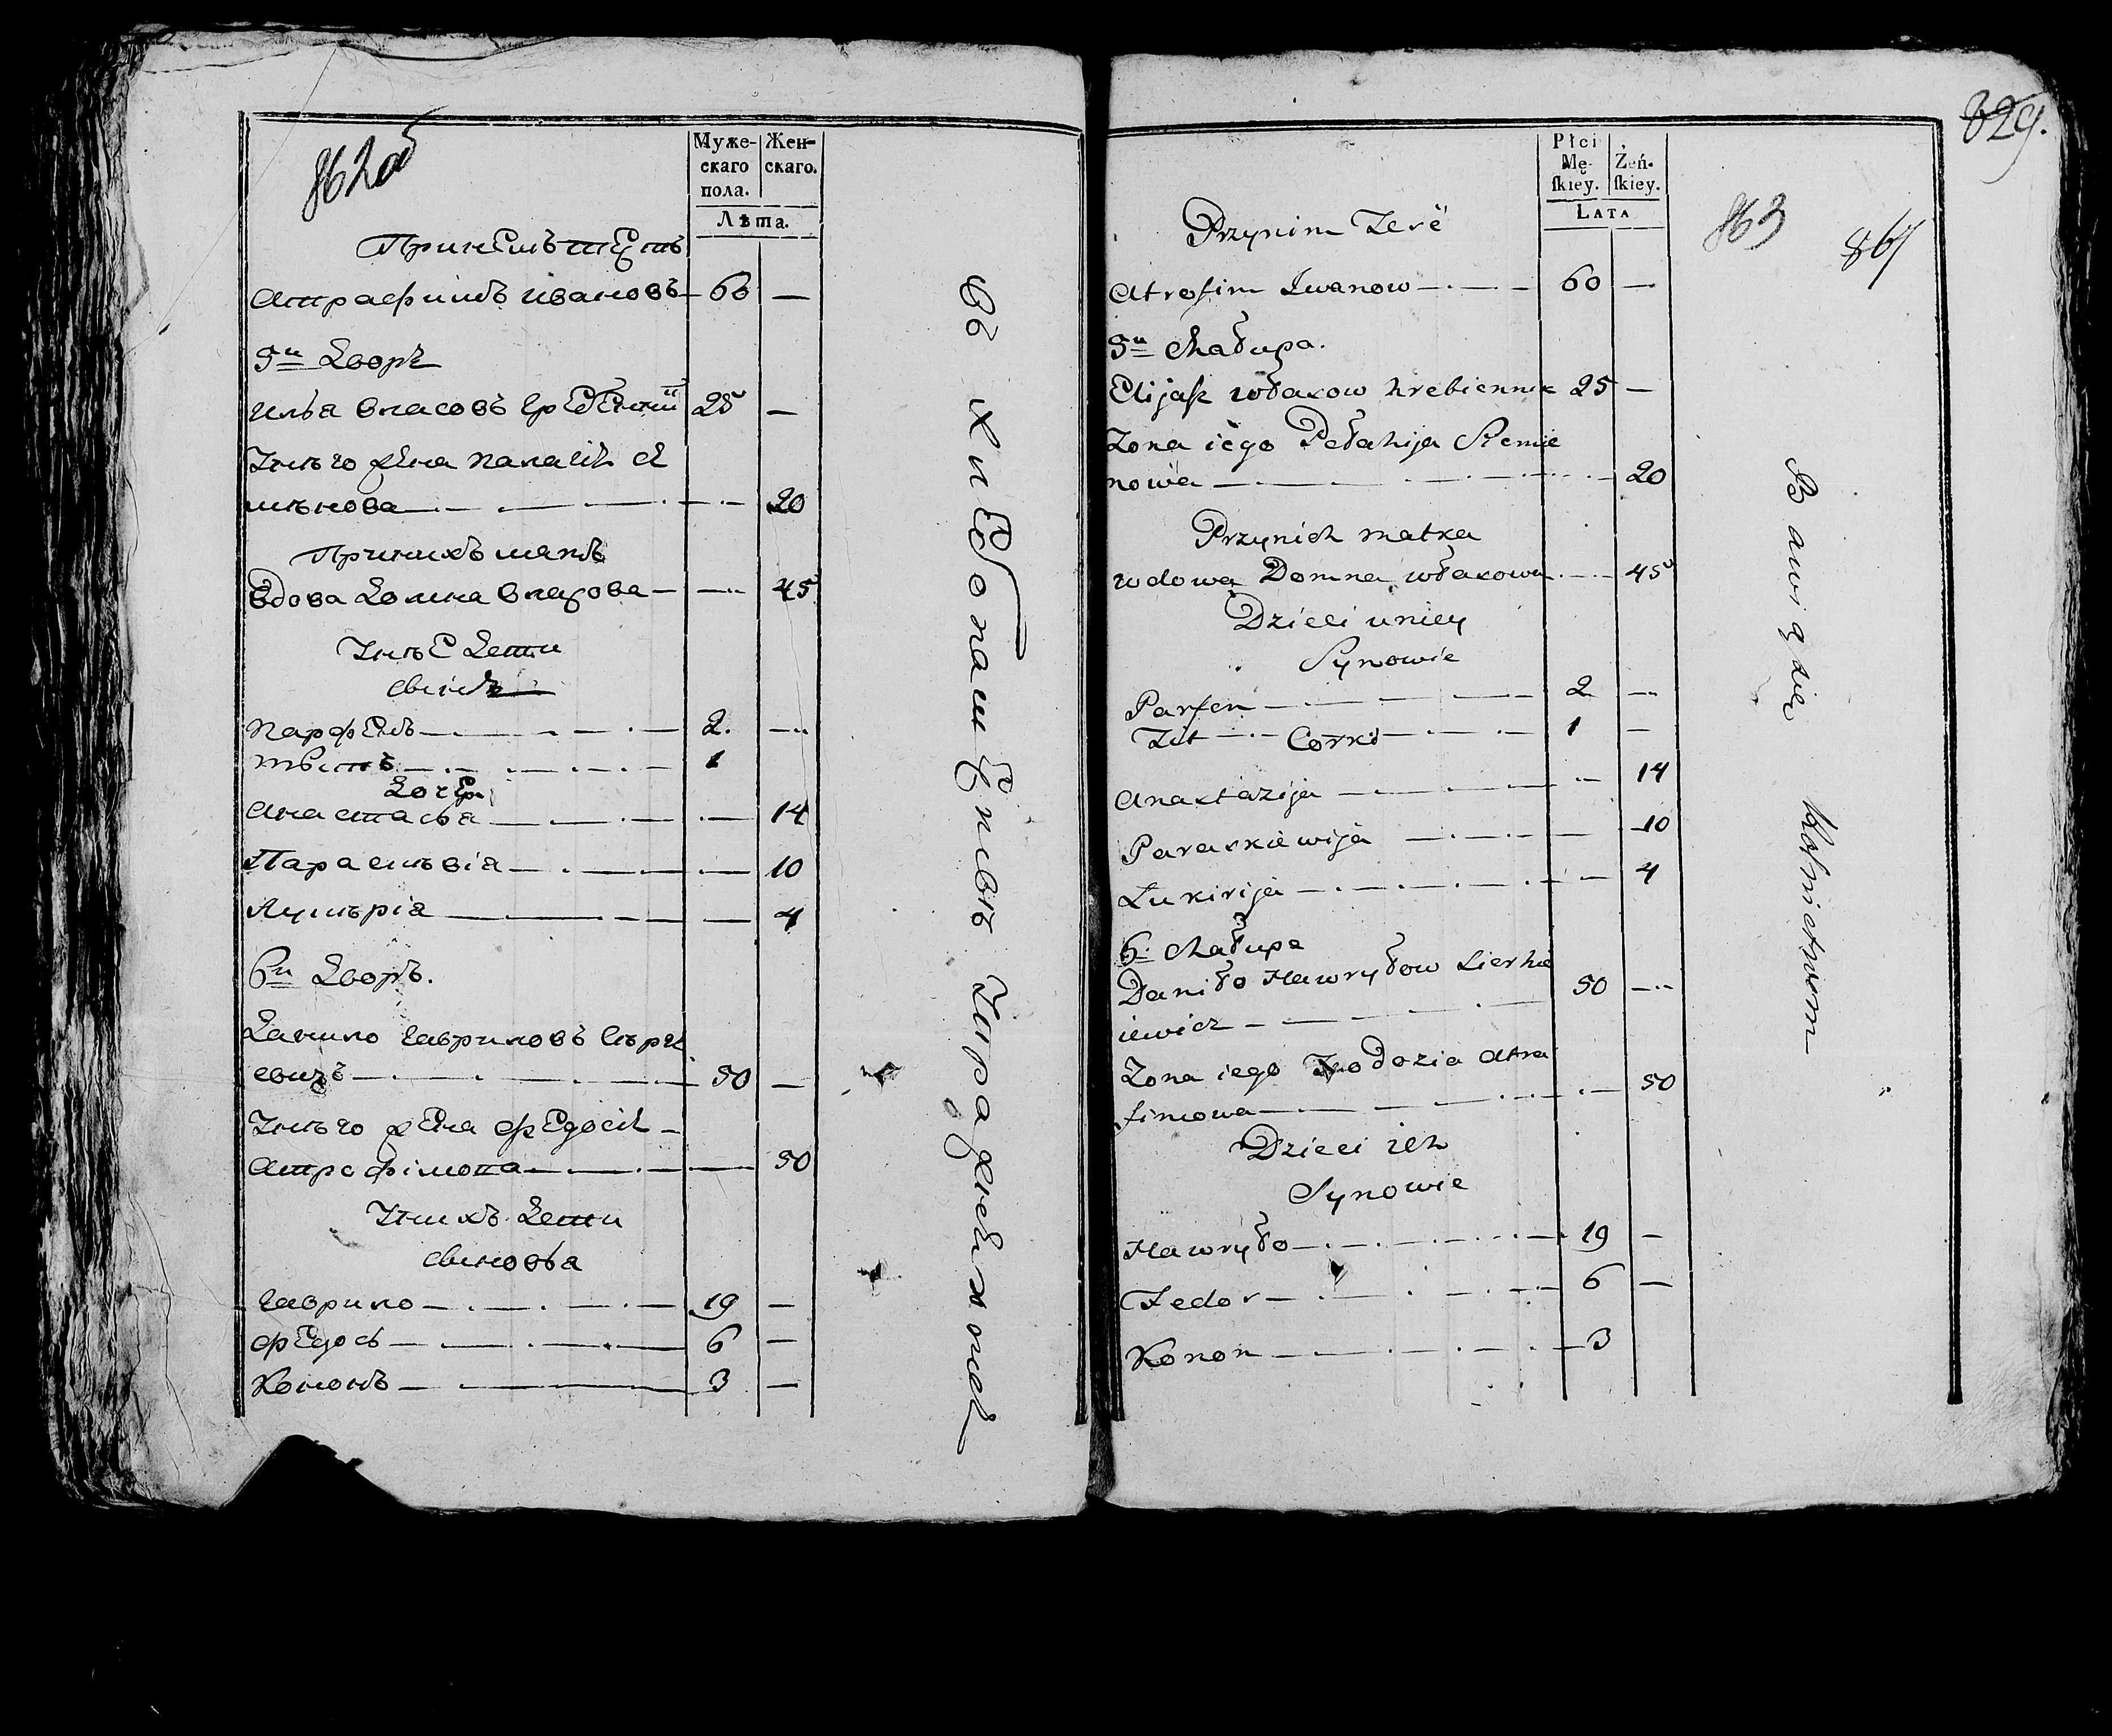 862об
Муже-
скаго
пола.
Жен-
скаго.
Лѣта.
При немъ тесть
Атрафимъ Ивановъ — 60 —
5й Дворъ
Илья Власовъ Гребенный 25 —
У него жена Палагея Се
менова — 20
При нихъ мать
Вдова Домна Власова — 45
У нее дети
Сыны
Парфенъ — 2. —
Титъ — 1
Дочери
Анастасья — 14
Параскевія — 10
Лукерія — 4
6й Дворъ.
Данило Гавриловъ Серге
евичъ — 50 —
У него жена Федосія —
Атрофимова — 50
У нихъ дети
Сыновья
Гаврило — 19 —
Федосъ — 6 —
Кононъ — 3 —
Въ хлебопашестве упражняются
829.
863
864
Płci
Mę-
ſkiey.
Żeń-
ſkiey.
LATA
Przynim Teść
Atrofim Iwanow — 60 —
5a Chałupa.
Elijasz Własow Hrebiennik 25 —
Zona iego Pełahija Siemie
nowa — 20
Przynich matka
wdowa Domna Własowa — 45
Dzieci u niey
Synowie
Parfen — 2 —
Tit — 1 —
Corki
Anastazija — 14
Paraskiewija — 10
Łukirija — 4
6a Chałupa
Daniło Hawryłow Sierhie
iewicz — 50 —
Zona iego Teodozia Atra
fimowa — 50
Dzieci ich
Synowie
Hawryło — 19 —
Fedor — 6 —
Konon — 3
Bawią się Rolnictwem